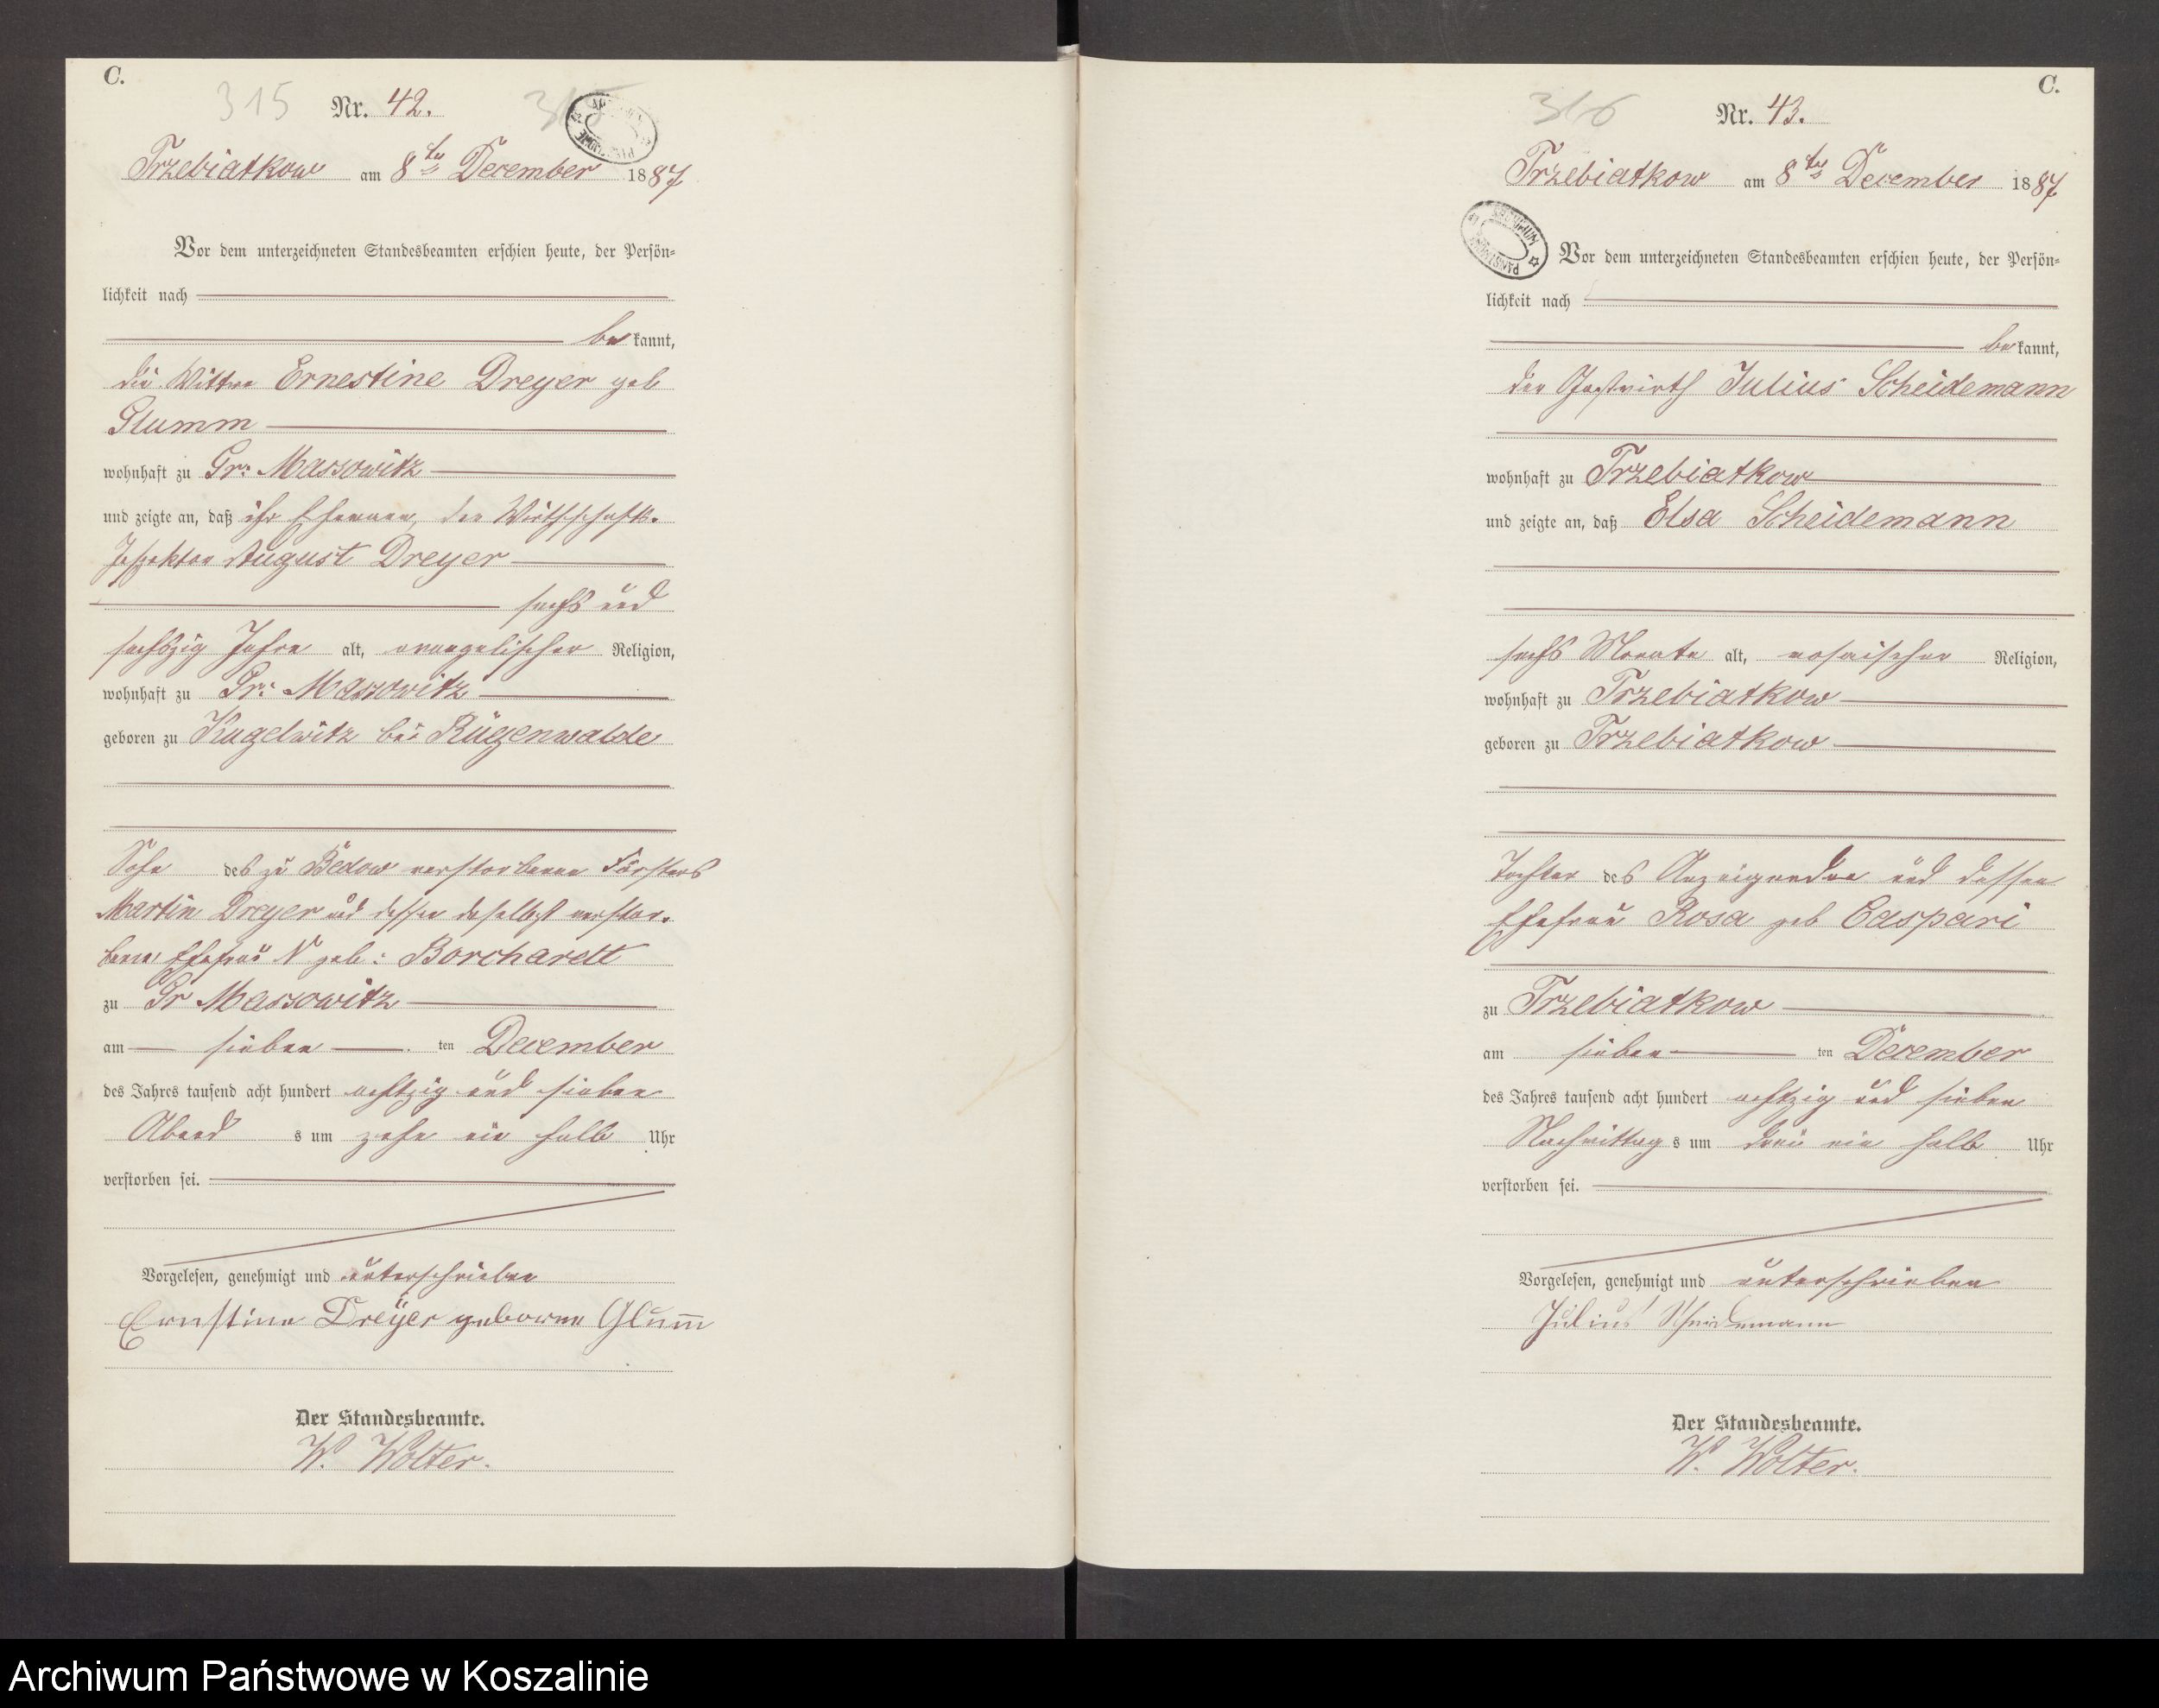 C.
315
Nr. 42.
Trzebiatkow am 8ten December 1887
Vor dem unterzeichneten Standesbeamten erschien heute, der Persön-
lichkeit nach
bekannt,
die Wittwe Ernestine Dreyer geb
Glumm
wohnhaft zu Gr: Massowitz
und zeigte an, daß ihr Ehemann, der Wirthschafts-
Inspektor August Dreyer
sechs und
sechszig Jahre alt, evangelischer Religion,
wohnhaft zu Gr: Massowitz
geboren zu Kugelwitz bei Rügenwalde
Sohn des zu verstorbenen Försters
Martin Dreyer und dessen daselbst verstor-
benen Ehefrau N geb: Borchardt
zu Gr Massowitz
am sieben ten December
des Jahres tausend acht hundert achtzig und sieben
Abends um zehn ein halb Uhr
verstorben sei.
Vorgelesen, genehmigt und unterschrieben
Ernstine Dreÿer geborne Glum̅
Der Standesbeamte.
W. Wolter.
C.
316
Nr. 43.
Trzebiatkow am 8ten December 1887
Vor dem unterzeichneten Standesbeamten erschien heute, der Persön-
lichkeit nach
bekannt,
der Gastwirth Julius Scheidemann
wohnhaft zu Trzebiatkow
und zeigte an, daß Elsa Scheidemann
sechs Monate alt, mosaischer Religion,
wohnhaft zu Trzebiatkow
geboren zu Trzebiatkow
Tochter des Anzeigenden und dessen
Ehefrau Rosa geb Caspari
zu Trzebiatkow
am sieben ten December
des Jahres tausend acht hundert achtzig und sieben
Nachmittags um drei ein halb Uhr
verstorben sei.
Vorgelesen, genehmigt und unterschrieben
Julius Scheidemann
Der Standesbeamte.
W. Wolter.
Archiwum Państwowe w Koszalinie